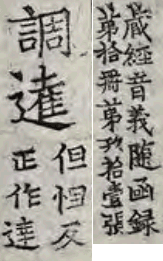 藏經音義隨函錄
第拾冊第玖拾壹張
調達
但怛反
正作達